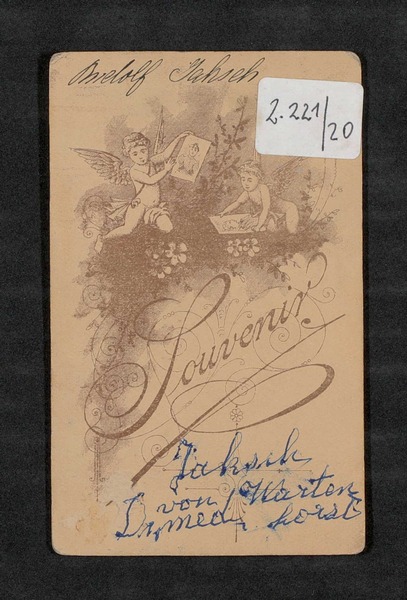 Rudolf Jaksch
2.221/20
Souvenir
Jaksch
von Warten
Dr. med. horst